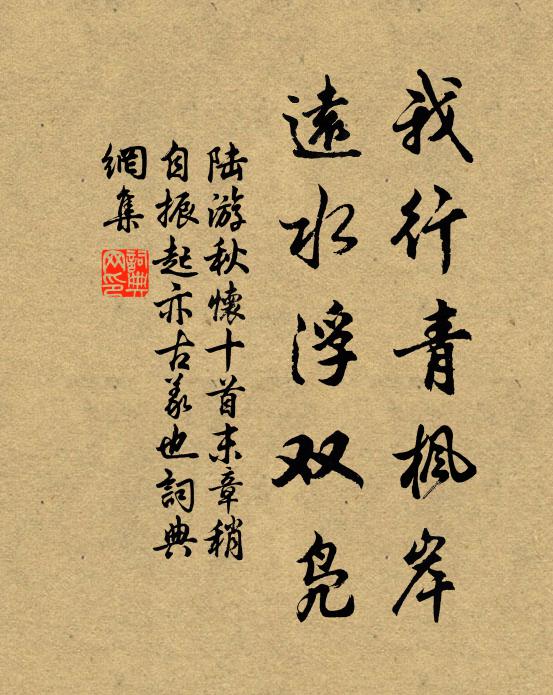 我行青枫岸
遠水浮双凫
陆游秋懷十首末章稍
自振起亦古義也詞典
網集
詞典
网印